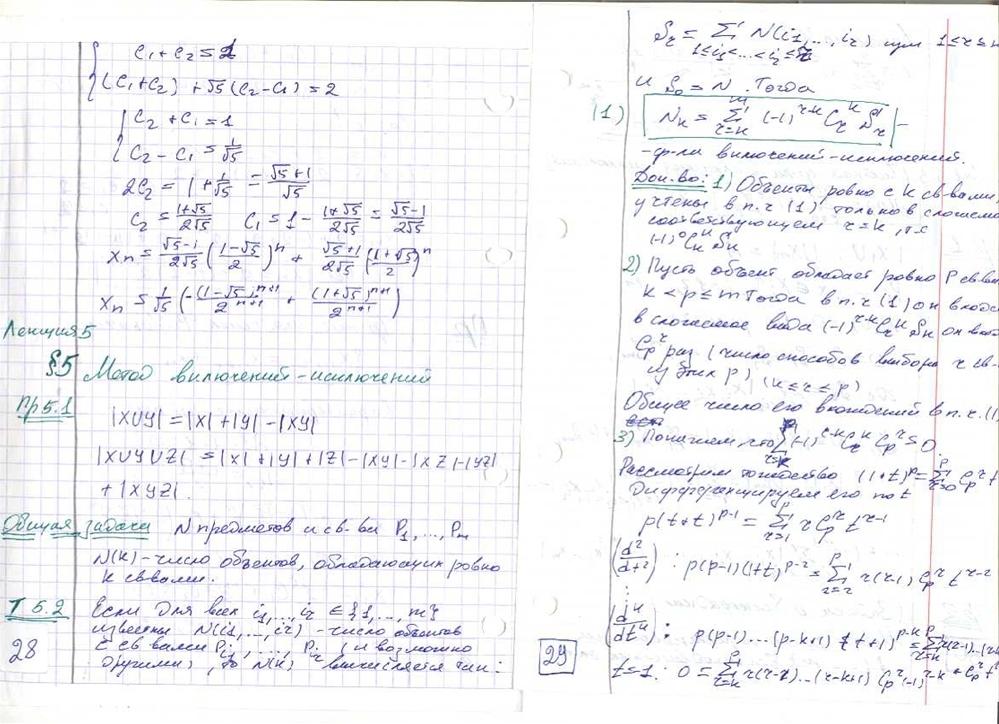 C₁+C₂=1
(C₁+C₂) + √5(C₂-C₁) = 2
C₂ + C₁ = 1
C₂ - C₁ = 1/√5
2C₂ = 1 + 1/√5 = (√5+1)/√5
C₂ = (1+√5)/(2√5) C₁ = 1 - (1+√5)/(2√5) = (√5-1)/(2√5)
xₙ = (√5-1)/(2√5) ((1-√5)/2)ⁿ + (√5+1)/(2√5) ((1+√5)/2)ⁿ
xₙ = 1/√5 (-(1-√5)ⁿ⁺¹/2ⁿ⁺¹ + (1+√5)ⁿ⁺¹/2ⁿ⁺¹)
Лекция 5
§5 Метод включений-исключений
Пр 5.1
|X∪Y| = |X| + |Y| - |XY|
|X∪Y∪Z| = |X| + |Y| + |Z| - |XY| - |XZ| - |YZ|
+ |XYZ|.
Общая задача N предметов и св-ва P₁, ..., Pₘ
N(k) - число объектов, обладающих ровно
k св-вами.
Т 5.2 Если для всех i₁, ..., iᵣ ∈ {1, ..., m}
известны N(i₁, ..., iᵣ) - число объектов
с св-вами Pᵢ₁, ..., Pᵢᵣ (и возможно
другими), то N(k) вычисляется так:
28
Sᵣ = Σ N(i₁, ..., iᵣ) при 1≤r≤
1≤i₁<...<iᵣ≤
и S₀ = N. Тогда
(1) Nₖ = Σᵣ₌ₖᵐ (-1)ʳ⁻ᵏ Cᵣᵏ Sᵣ -
- ф-ла включений-исключений.
Док-во: 1) Объекты ровно с k св-вами,
учтены в п.ч (1) только в слагаемом
соответствующем r=k, т.е
(-1)⁰ Cₖᵏ Sₖ
2) Пусть объект обладает ровно p св-в
k < p ≤ m Тогда в п.ч (1) он входи
в слагаемое вида (-1)ʳ⁻ᵏ Cᵣᵏ Sₖ он вхо
Cₚʳ раз (число способов выбора r св-
из этих p) (k ≤ r ≤ p)
Общее число его вхождений в п.ч. (1
3) Покажем, что Σᵣ₌ₖᵖ (-1)ʳ⁻ᵏ Cᵣᵏ Cₚʳ = 0.
Рассмотрим тождество (1+t)ᵖ = Σᵣ₌₀ᵖ Cₚʳ t
Дифференцируем его по t
p(t+t)ᵖ⁻¹ = Σᵣ₌₁ᵖ r Cₚʳ tʳ⁻¹
(d²/dt²) : p(p-1)(1+t)ᵖ⁻² = Σᵣ₌₂ᵖ r(r-1) Cₚʳ tʳ⁻²
⋮
(dᵏ/dtᵏ) : p(p-1)...(p-k+1) (t+1)ᵖ⁻ᵏ = Σᵣ₌ₖᵖ r(r-1)...(r-
29
t=-1. 0 = Σᵣ₌ₖᵖ r(r-1)...(r-k+1) Cₚʳ (-1)ʳ⁻ᵏ